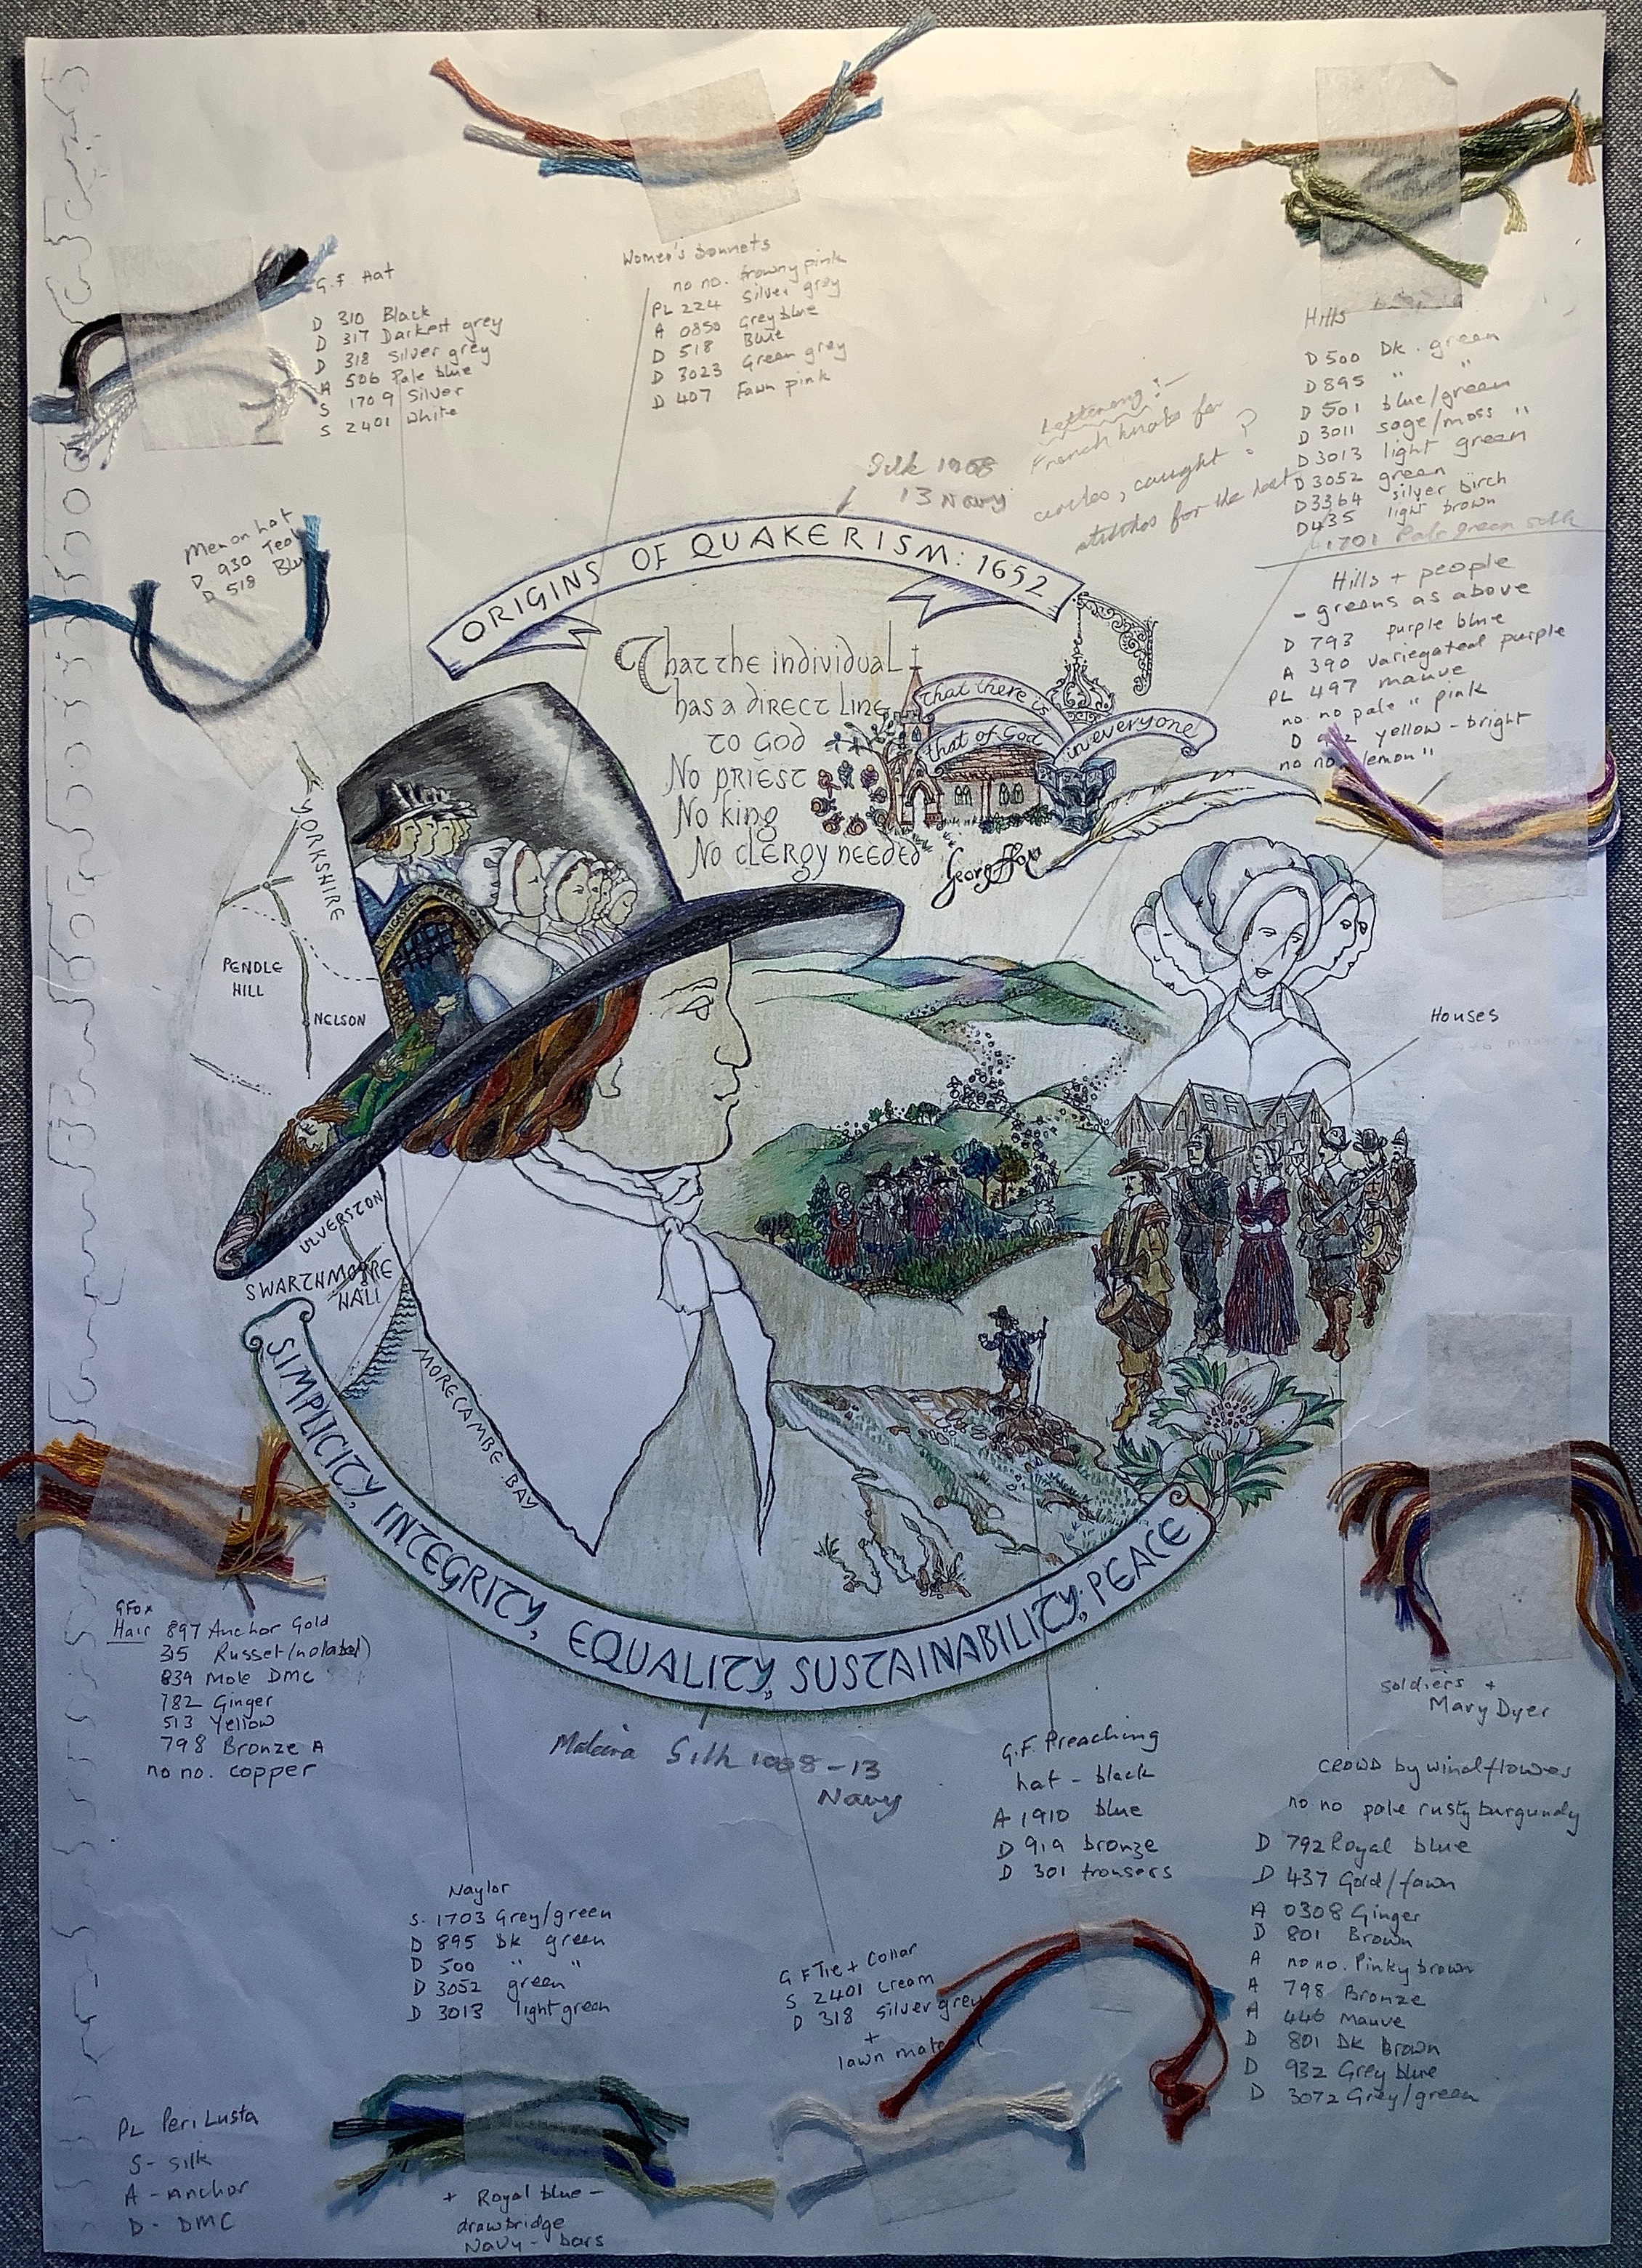 G.F Hat
D 310 Black
D 317 Darkest grey
D 318 Silver grey
A 506 Pale blue
S 1709 Silver
S 2401 White
Women's Bonnets
no no. browny pink
PL 224 Silver grey
A 0850 Grey blue
D 518 Blue
D 3023 Green grey
D 407 Fawn pink
Hills
D 500 Dk. green
D 895 " "
D 501 blue/green
D 3011 sage/moss "
D 3013 light green
D 3052 green
D 3364 silver birch
D 435 light brown
1701 Pale green silk
Lettering?
French knots for
circles, caught ?
stitches for the rest
Silk 1008
13 Navy
Men on hat
D 930 Teal
D 518 Blue
Hills + people
- greens as above
D 793 purple blue
A 390 variegated purple
PL 497 mauve
no. no pale " pink
D yellow - bright
no no. lemon "
ORIGINS OF QUAKERISM: 1652
That the individual
has a direct line
to God
No priest
No king
No clergy needed
that there is
that of God
in everyone
George Fox
YORKSHIRE
PENDLE
HILL
NELSON
LANCASTER
Houses
ULVERSTON
SWARTHMOORE
HALL
MORECAMBE BAY
SIMPLICITY, INTEGRITY, EQUALITY, SUSTAINABILITY, PEACE
GFox
Hair 897 Anchor Gold
315 Russet (no label)
839 Mole DMC
782 Ginger
513 Yellow
798 Bronze A
no no. copper
Madeira Silk 1008-13
Navy
Soldiers +
Mary Dyer
G.F. Preaching
hat - black
A 1910 blue
D 919 bronze
D 301 trousers
CROWD by windflowers
no no pale rusty burgundy
D 792 Royal blue
D 437 Gold/fawn
A 0308 Ginger
D 801 Brown
A no no. Pinky brown
A 798 Bronze
A 446 Mauve
D 801 DK Brown
D 932 Grey blue
D 3072 Grey/green
Naylor
S. 1703 Grey/green
D 895 Dk green
D 500 " "
D 3052 green
D 3013 light green
G F Tie + Collar
S 2401 Cream
D 318 Silver grey
+
lawn mate
PL Peri Lusta
S - Silk
A - Anchor
D - DMC
+ Royal blue -
drawbridge
Navy - bars